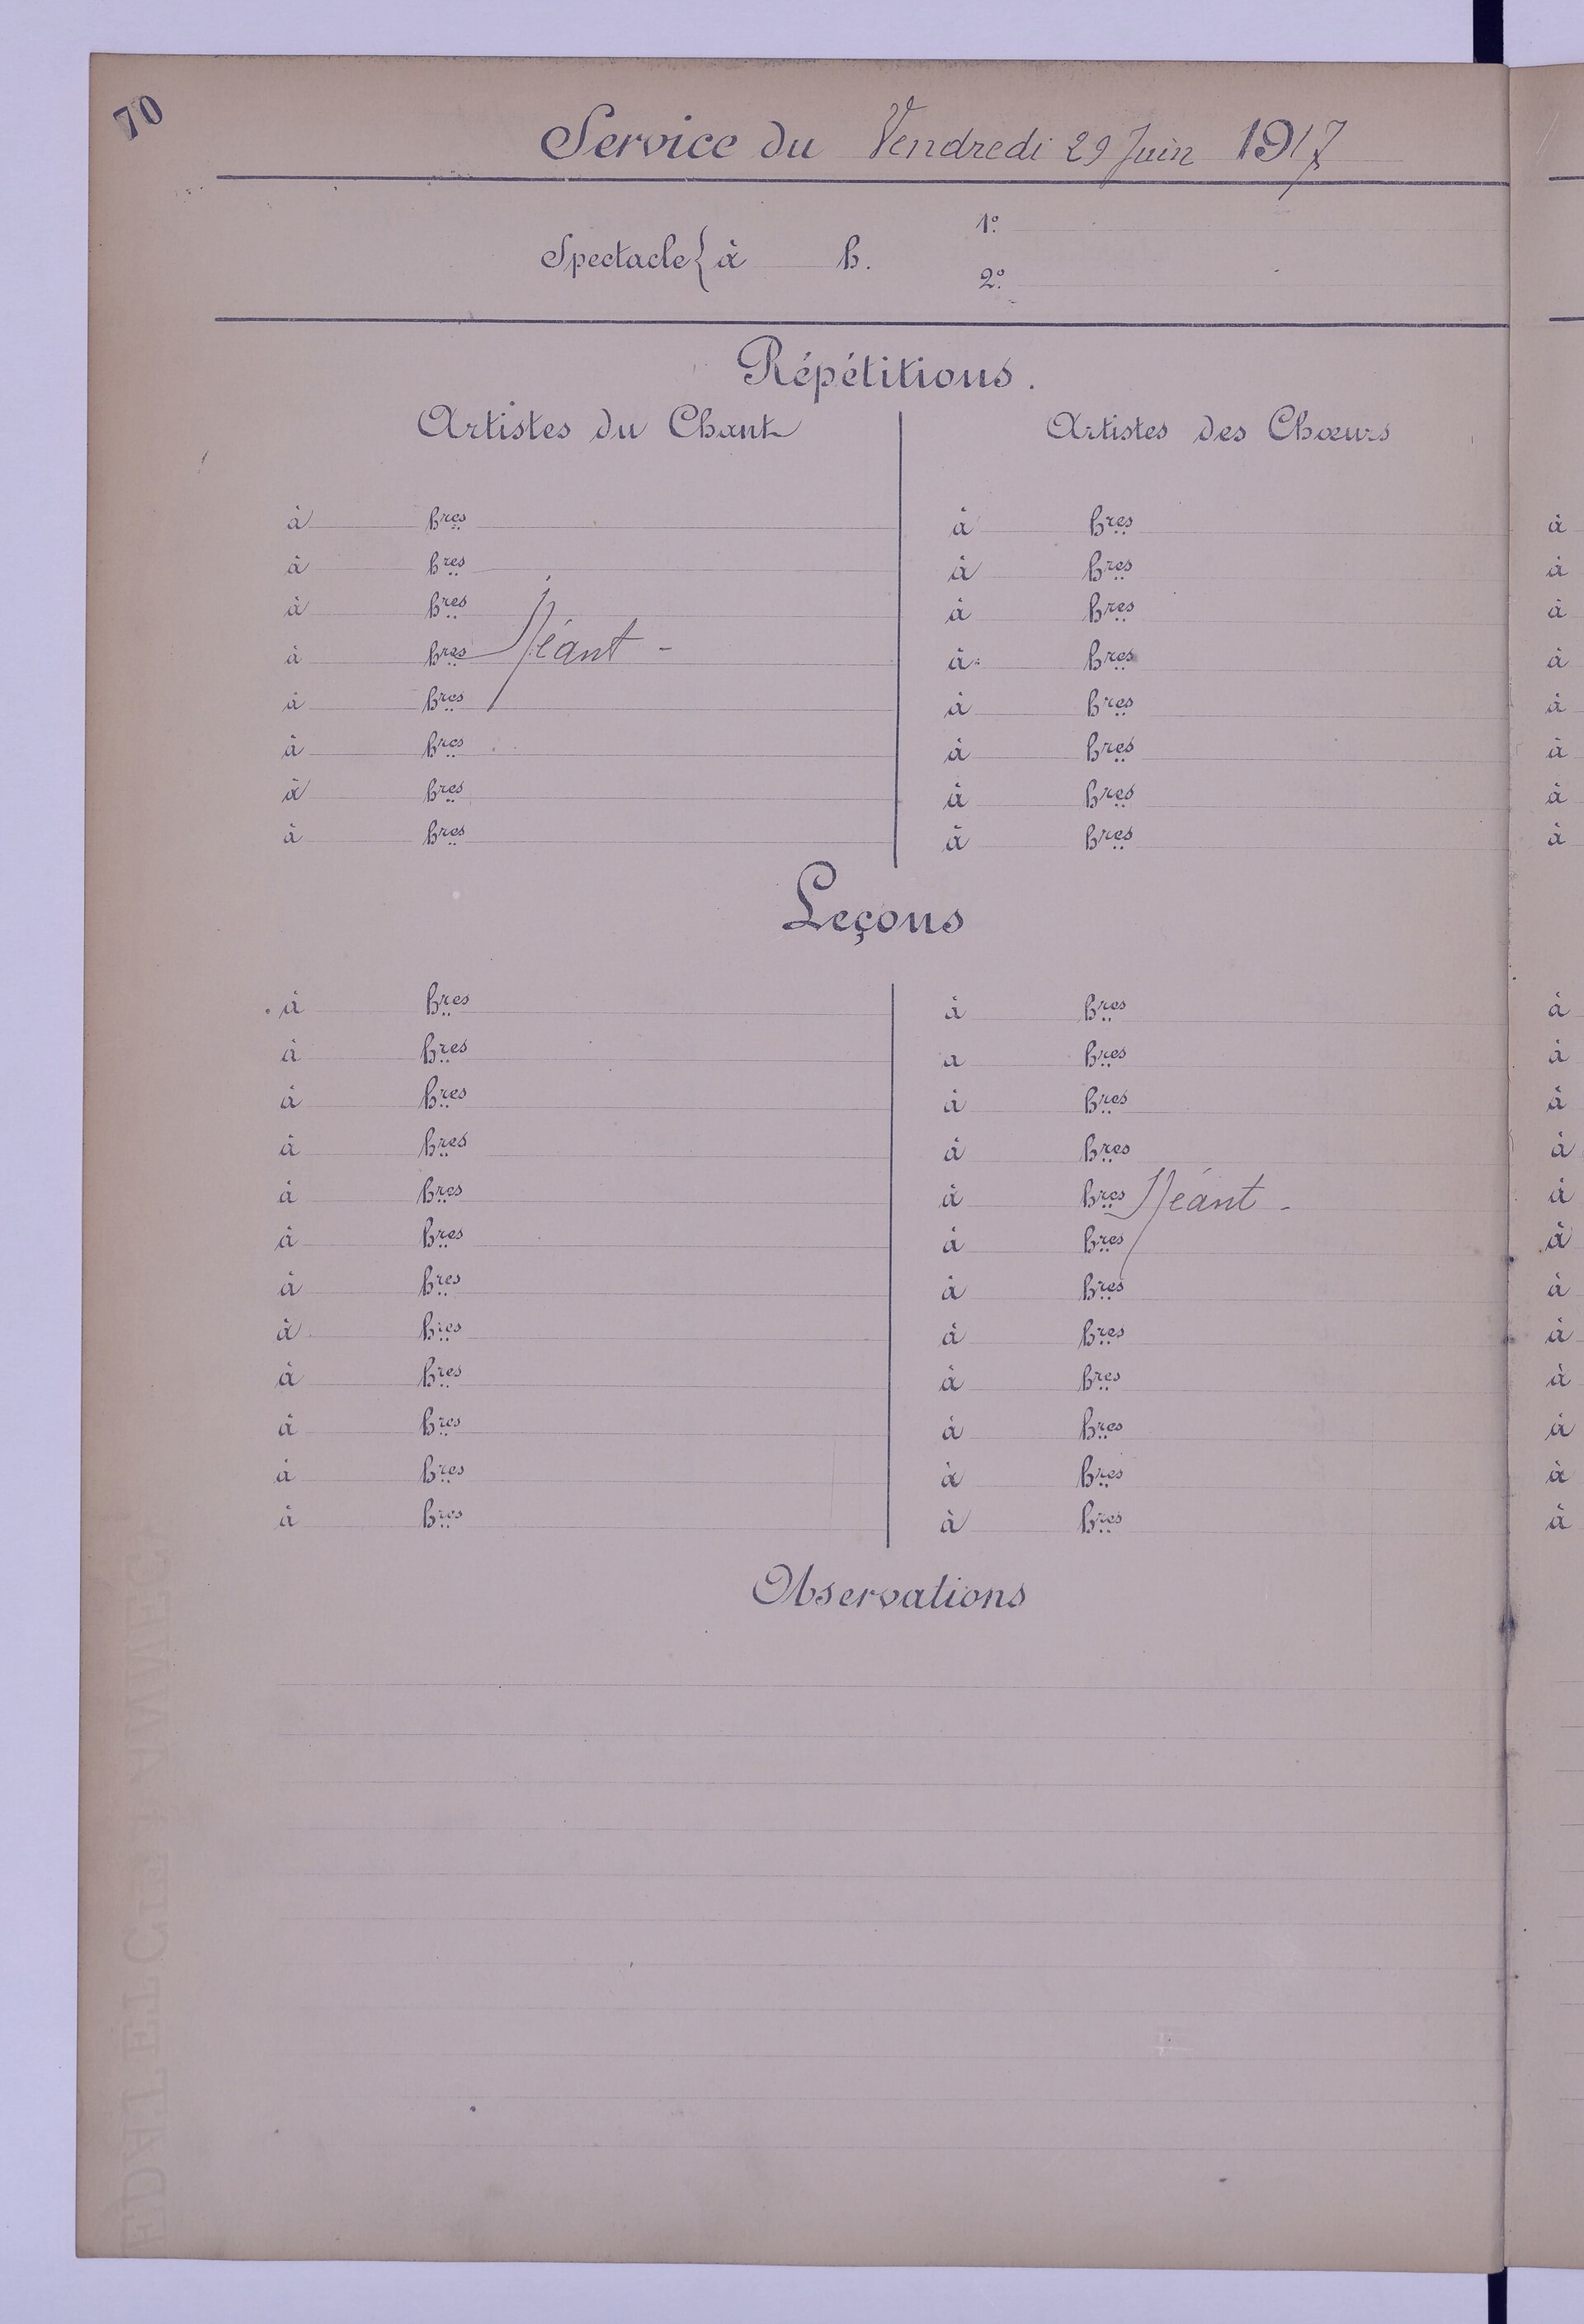 70
Service du Vendredi 29 Juin 1917
Spectacle { à h. 1º
2º
Répétitions.
Artistes du Chant Artistes des Chœurs
à hres à hres
à hres à hres
à hres à hres
à hres Néant - à hres
à hres à hres
à hres à hres
à hres à hres
à hres à hres
Leçons
à hres à hres
à hres a hres
à hres à hres
à hres à hres
à hres à hres Néant -
à hres à hres
à hres à hres
à hres à hres
à hres à hres
à hres à hres
à hres à hres
à hres à hres
Observations